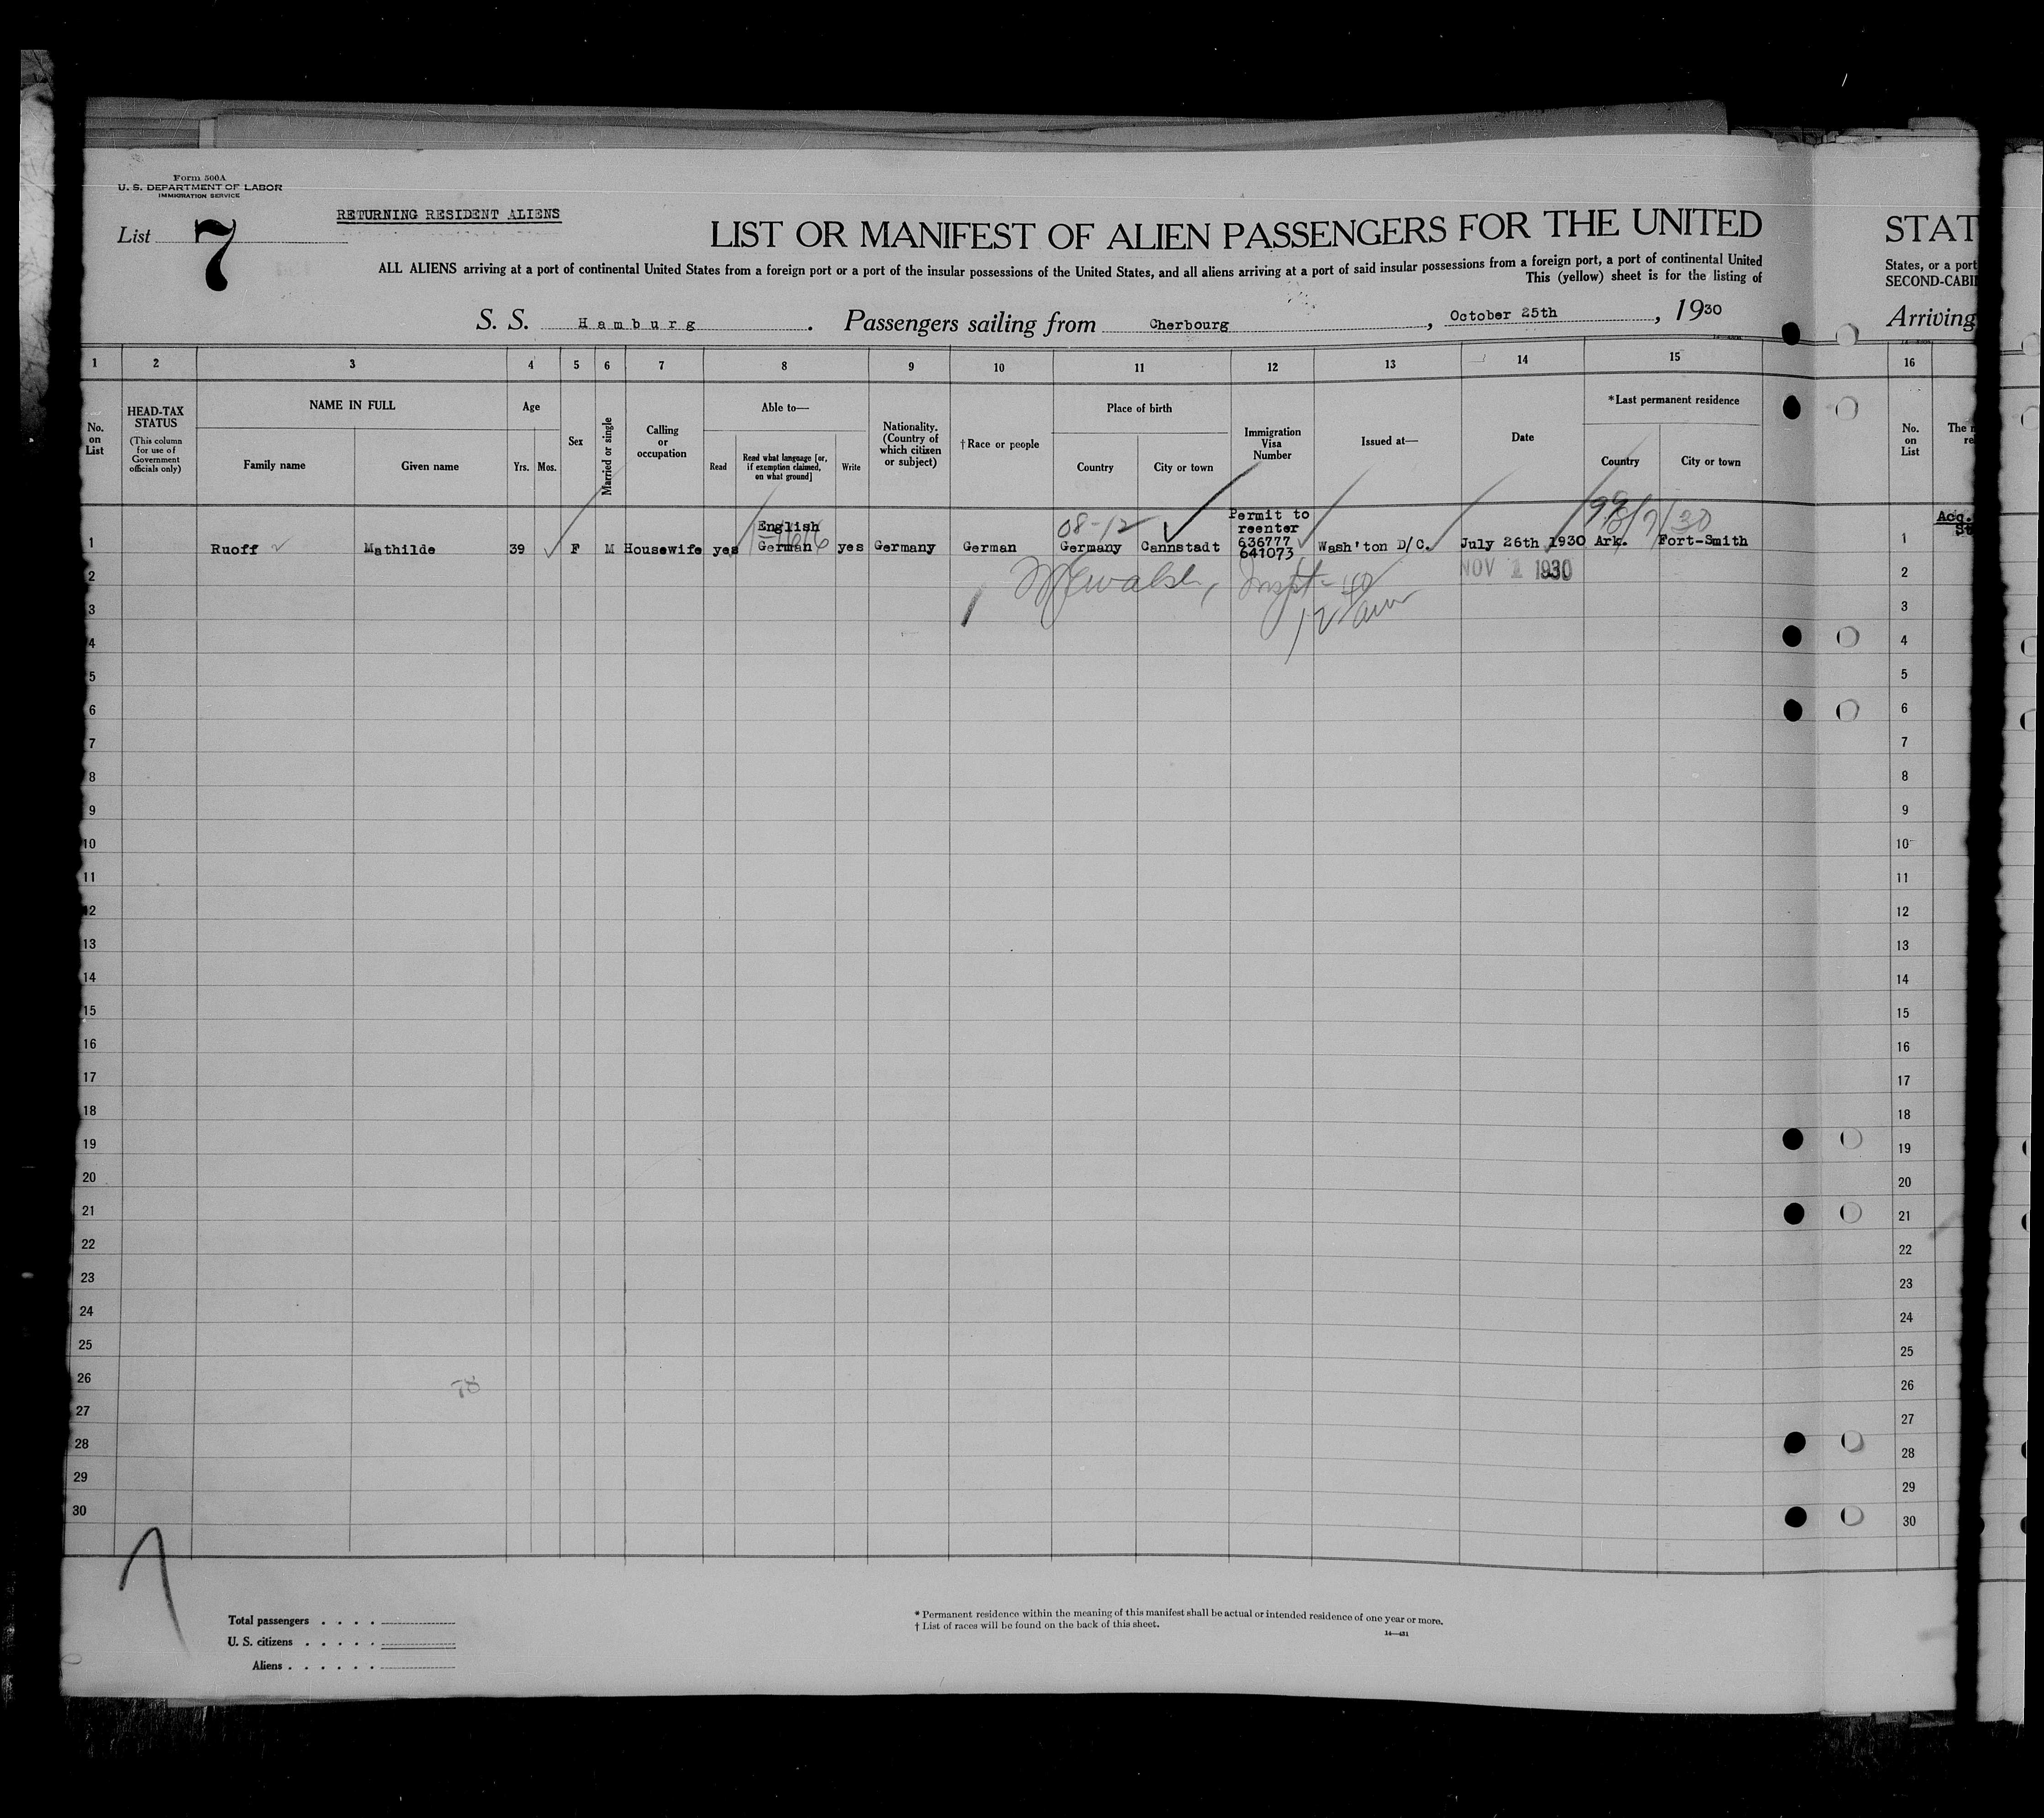 Form 500A
U. S. DEPARTMENT OF LABOR
IMMIGRATION SERVICE
List 7
RETURNING RESIDENT ALIENS
LIST OR MANIFEST OF ALIEN PASSENGERS FOR THE UNITED
ALL ALIENS arriving at a port of continental United States from a foreign port or a port of the insular possessions of the United States, and all aliens arriving at a port of said insular possessions from a foreign port, a port of continental United
This (yellow) sheet is for the listing of
S. S. Hamburg. Passengers sailing from Cherbourg, October 25th, 1930
STAT
States, or a port
SECOND-CABI
Arriving
1 2 3 4 5 6 7 8 9 10 11 12 13 14 15 16
No. on List
HEAD-TAX STATUS
(This column for use of Government officials only)
NAME IN FULL
Family name
Given name
Age
Yrs. Mos.
Sex
Married or single
Calling or occupation
Able to—
Read
Read what language [or, if exemption claimed, on what ground]
Write
Nationality. (Country of which citizen or subject)
†Race or people
Place of birth
Country
City or town
Immigration Visa Number
Issued at—
Date
*Last permanent residence
Country
City or town
No. on List
08-12
Permit to
English reenter
636777
1 Ruoff Mathilde 39 F M Housewife yes German yes Germany German Germany Cannstadt 641073 Wash'ton D/C. July 26th 1930 Ark. Fort-Smith 1
NOV 1 1930
2 2
3 3
4 4
5 5
6 6
7 7
8 8
9 9
10 10
11 11
12 12
13 13
14 14
15 15
16 16
17 17
18 18
19 19
20 20
21 21
22 22
23 23
24 24
25 25
26 26
27 27
28 28
29 29
30 30
Total passengers . . . .
U. S. citizens . . . . .
Aliens . . . . . .
* Permanent residence within the meaning of this manifest shall be actual or intended residence of one year or more.
† List of races will be found on the back of this sheet.
14—431